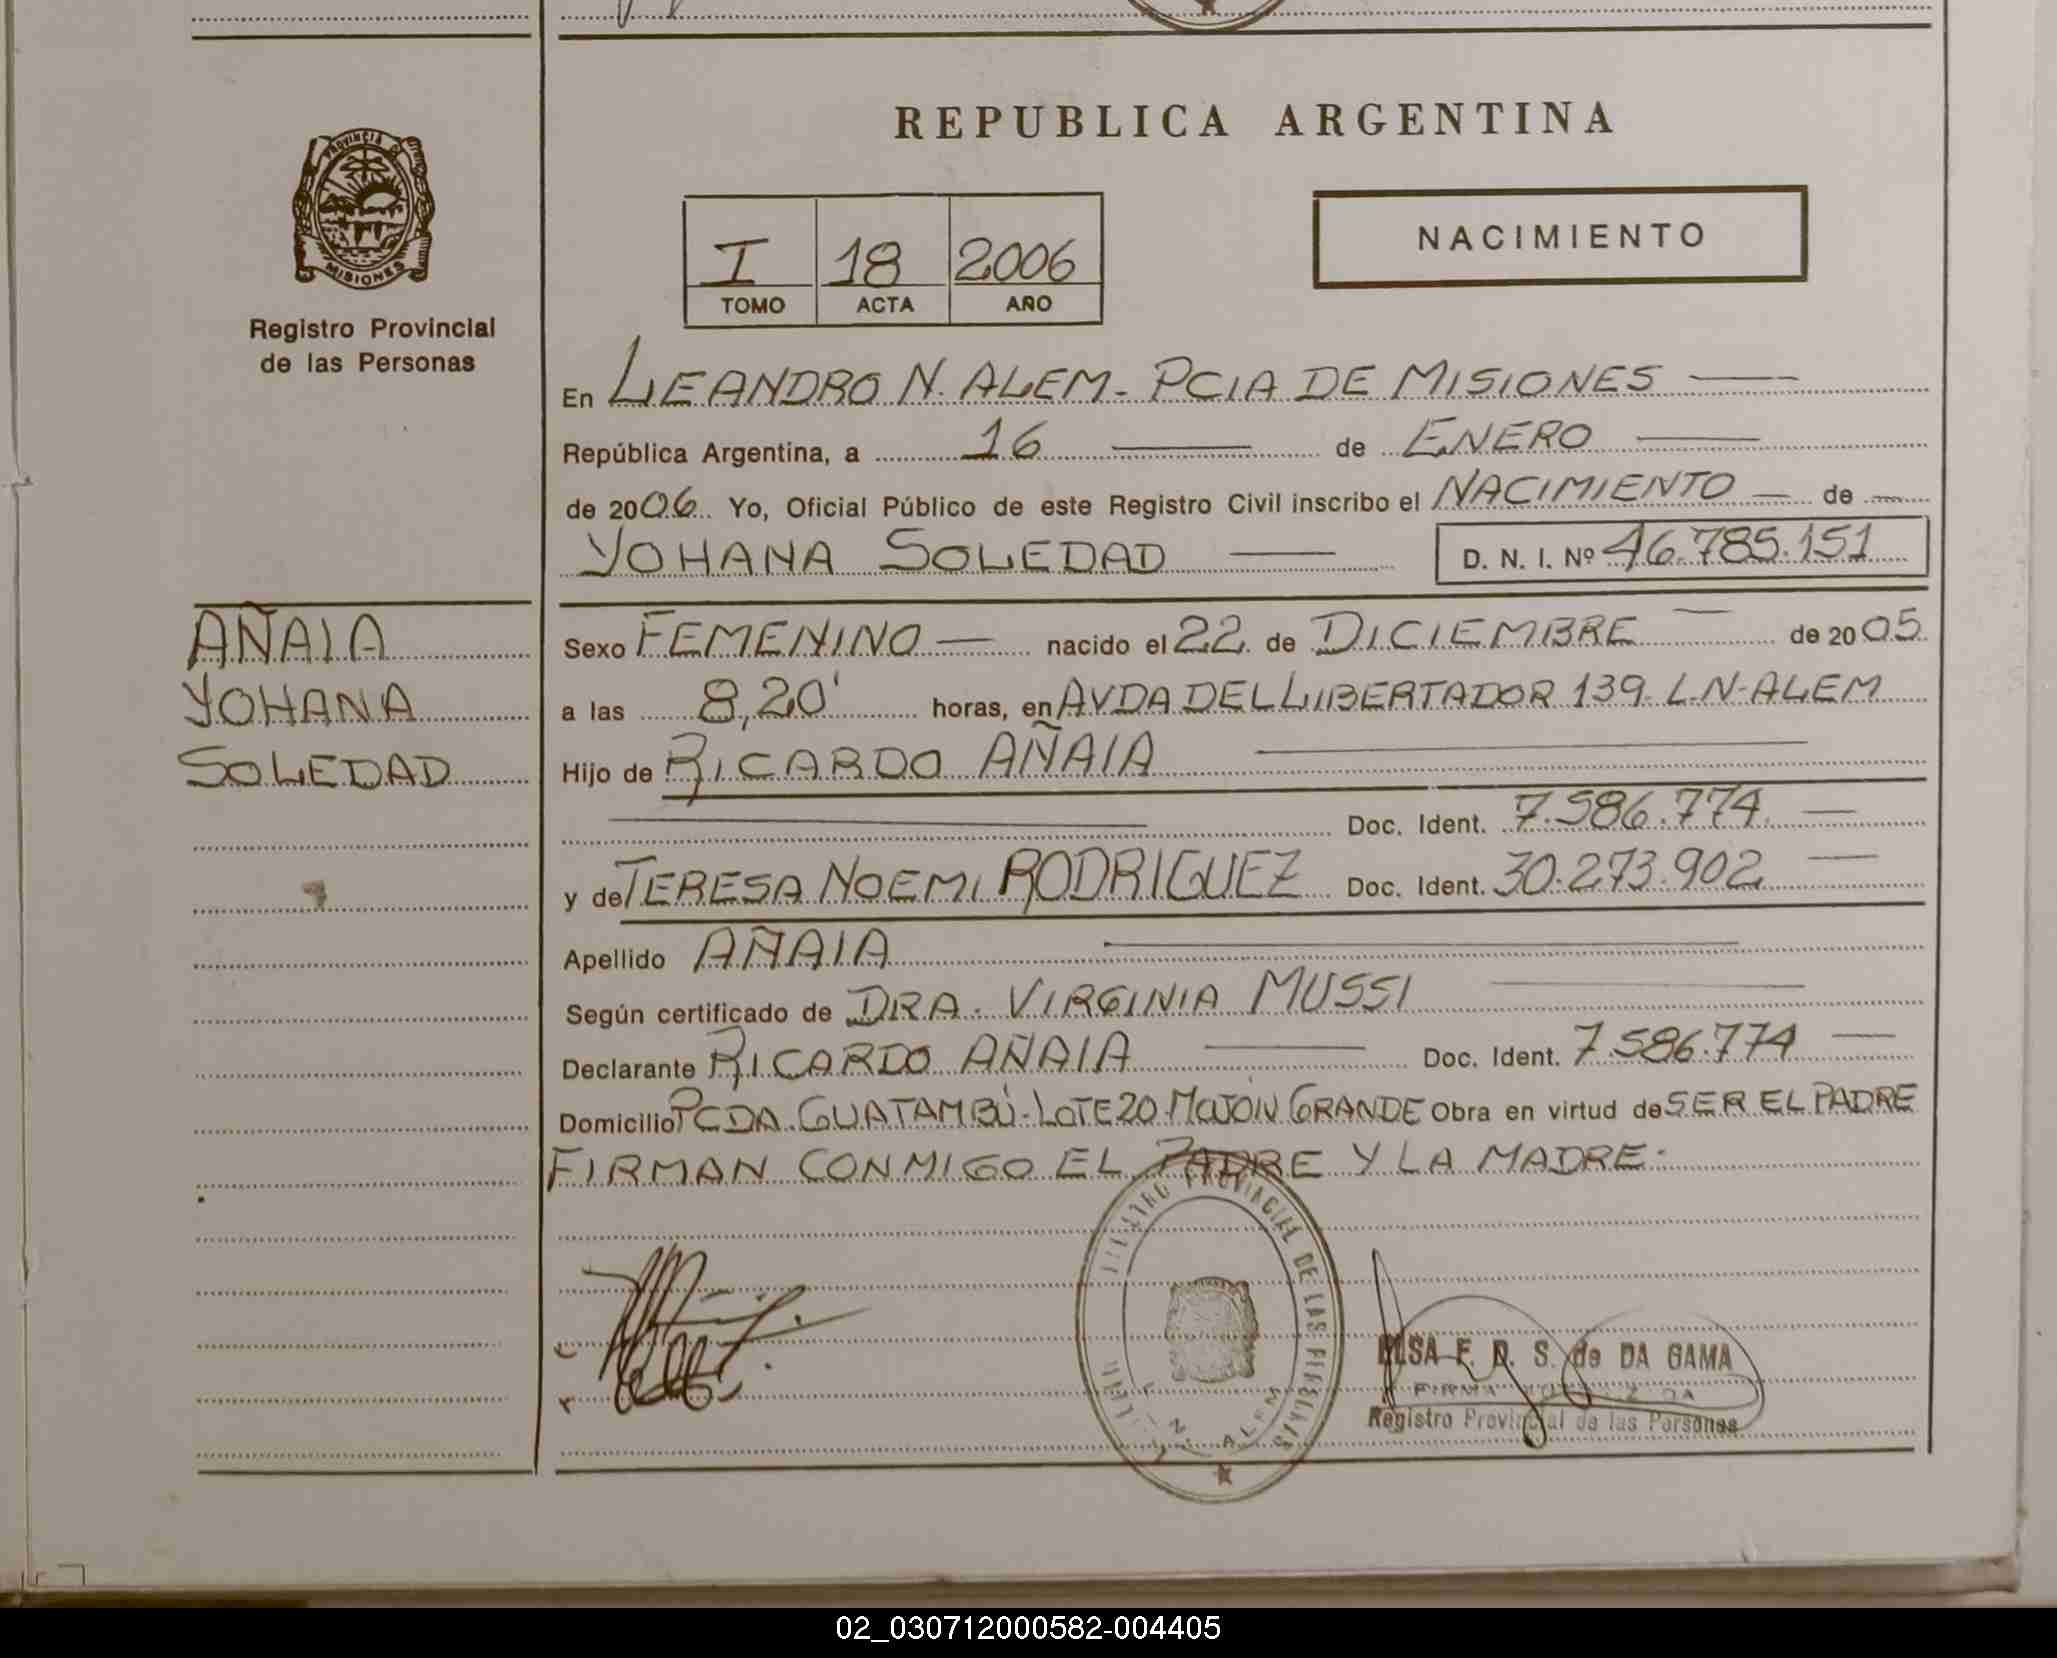 REPUBLICA ARGENTINA
PROVINCIA DE
MISIONES
Registro Provincial
de las Personas
I 18 2006
TOMO ACTA AÑO
NACIMIENTO
En LEANDRO N. ALEM - PCIA DE MISIONES
República Argentina, a 16 de ENERO
de 2006 Yo, Oficial Público de este Registro Civil inscribo el NACIMIENTO de
YOHANA SOLEDAD D. N. I. Nº 46.785.151
AÑAIA
YOHANA
SOLEDAD
Sexo FEMENINO nacido el 22 de DICIEMBRE de 2005
a las 8,20' horas, en AVDA DEL LIBERTADOR 139 L-N-ALEM
Hijo de RICARDO AÑAIA
Doc. Ident. 7.586.774
y de TERESA NOEMI RODRIGUEZ Doc. Ident. 30.273.902
Apellido AÑAIA
Según certificado de DRA. VIRGINIA MUSSI
Declarante RICARDO AÑAIA Doc. Ident. 7.586.774
Domicilio PCDA. GUATAMBÚ - LOTE 20 - MOJON GRANDE Obra en virtud de SER EL PADRE
FIRMAN CONMIGO EL PADRE Y LA MADRE.
REGISTRO PROVINCIAL DE LAS PERSONAS
L. N. ALEM
ELSA F. D. S. de DA GAMA
FIRMA AUTORIZADA
Registro Provincial de las Personas
02_030712000582-004405